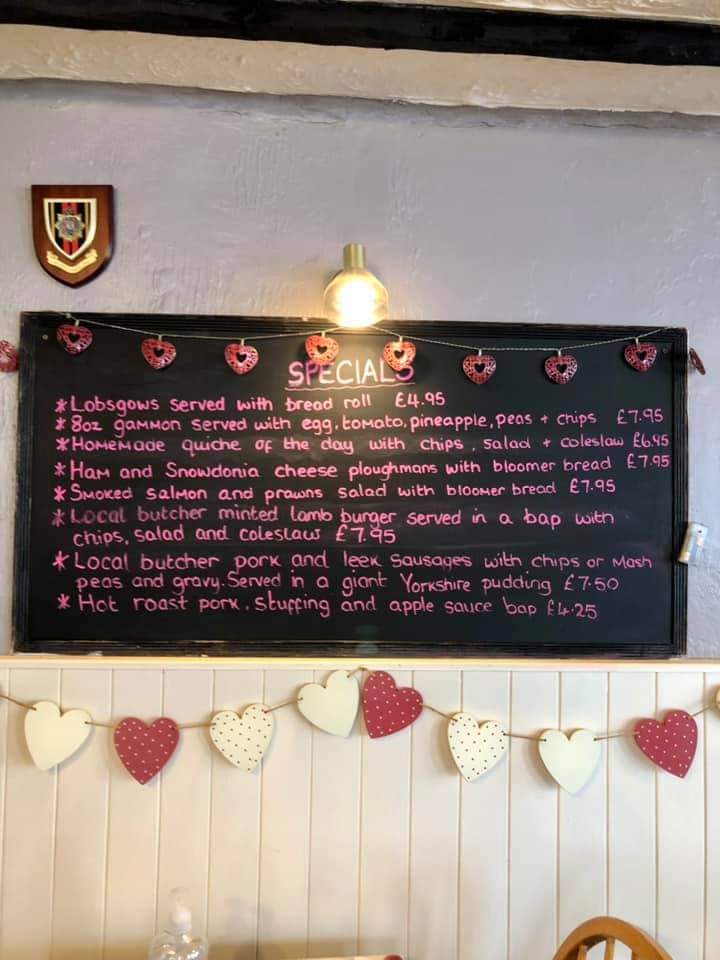 SPECIALS
*Lobsgows served with bread roll £4.95
*8oz gammon served with egg, tomato, pineapple, peas + chips £7.95
*Homemade quiche of the day with chips, salad + coleslaw £6.95
*Ham and Snowdonia cheese ploughmans with bloomer bread £7.95
*Smoked salmon and prawns salad with bloomer bread £7.95
*Local butcher minted lamb burger served in a bap with
chips, salad and coleslaw £7.95
*Local butcher pork and leek sausages with chips or mash
peas and gravy. Served in a giant Yorkshire pudding £7.50
*Hot roast pork, stuffing and apple sauce bap £4.25